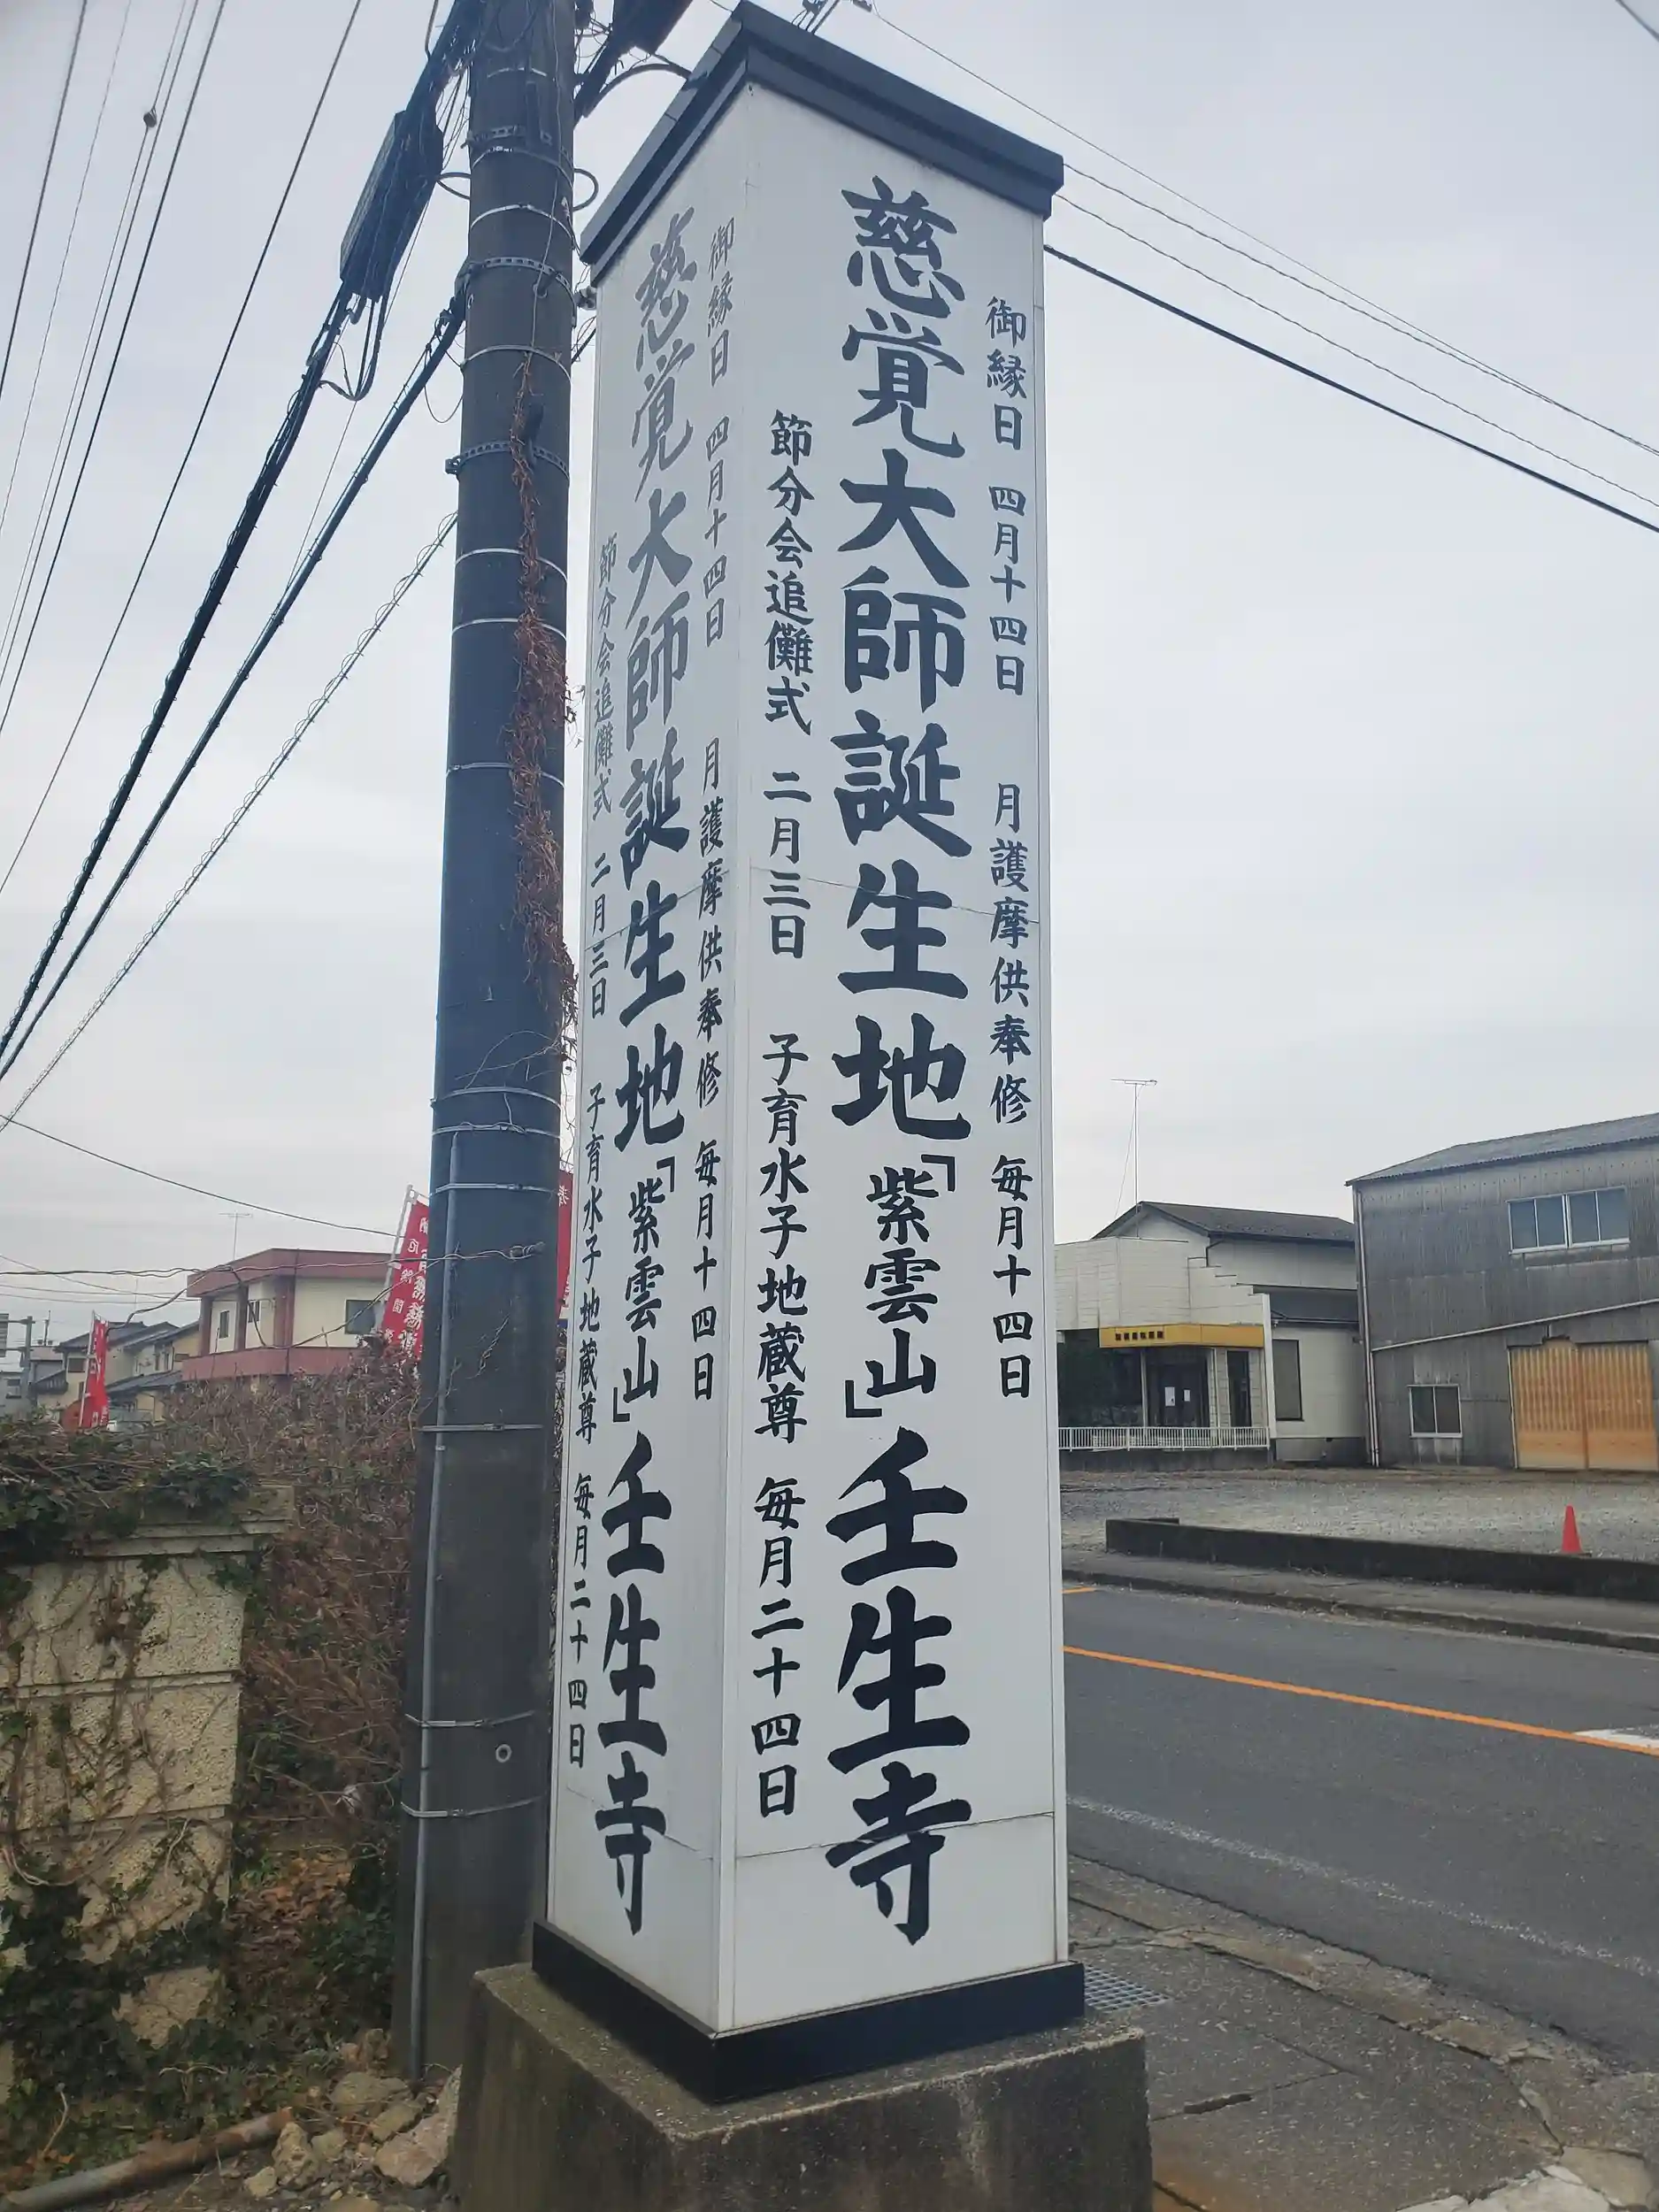 御縁日 四月十四日 月護摩供奉修 毎月十四日
慈覚大師誕生地「紫雲山」壬生寺
節分会追儺式 二月三日 子育水子地蔵尊 毎月二十四日
御縁日 四月十四日 月護摩供奉修 毎月十四日
慈覚大師誕生地「紫雲山」壬生寺
節分会追儺式 二月三日 子育水子地蔵尊 毎月二十四日